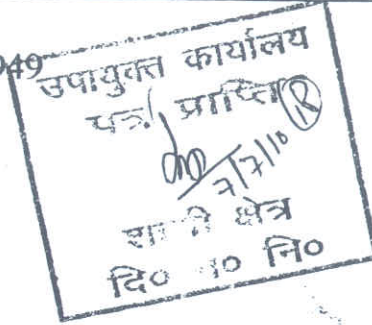 949
उपायुक्त कार्यालय
पत्र प्राप्ति R
7/7/10
क्षेत्र
दि० न० नि०